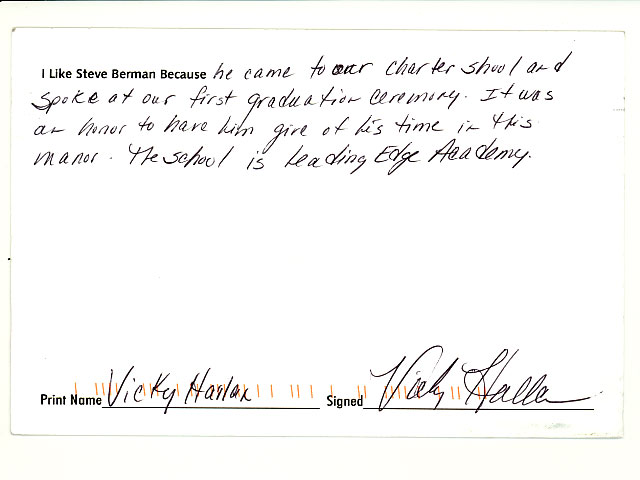 I Like Steve Berman Because he came to our charter shool and
spoke at our first graduation ceremony. It was
an honor to have him give of his time in this
manor. The school is Leading Edge Academy.
Print Name Vicky Harlan Signed Vicky